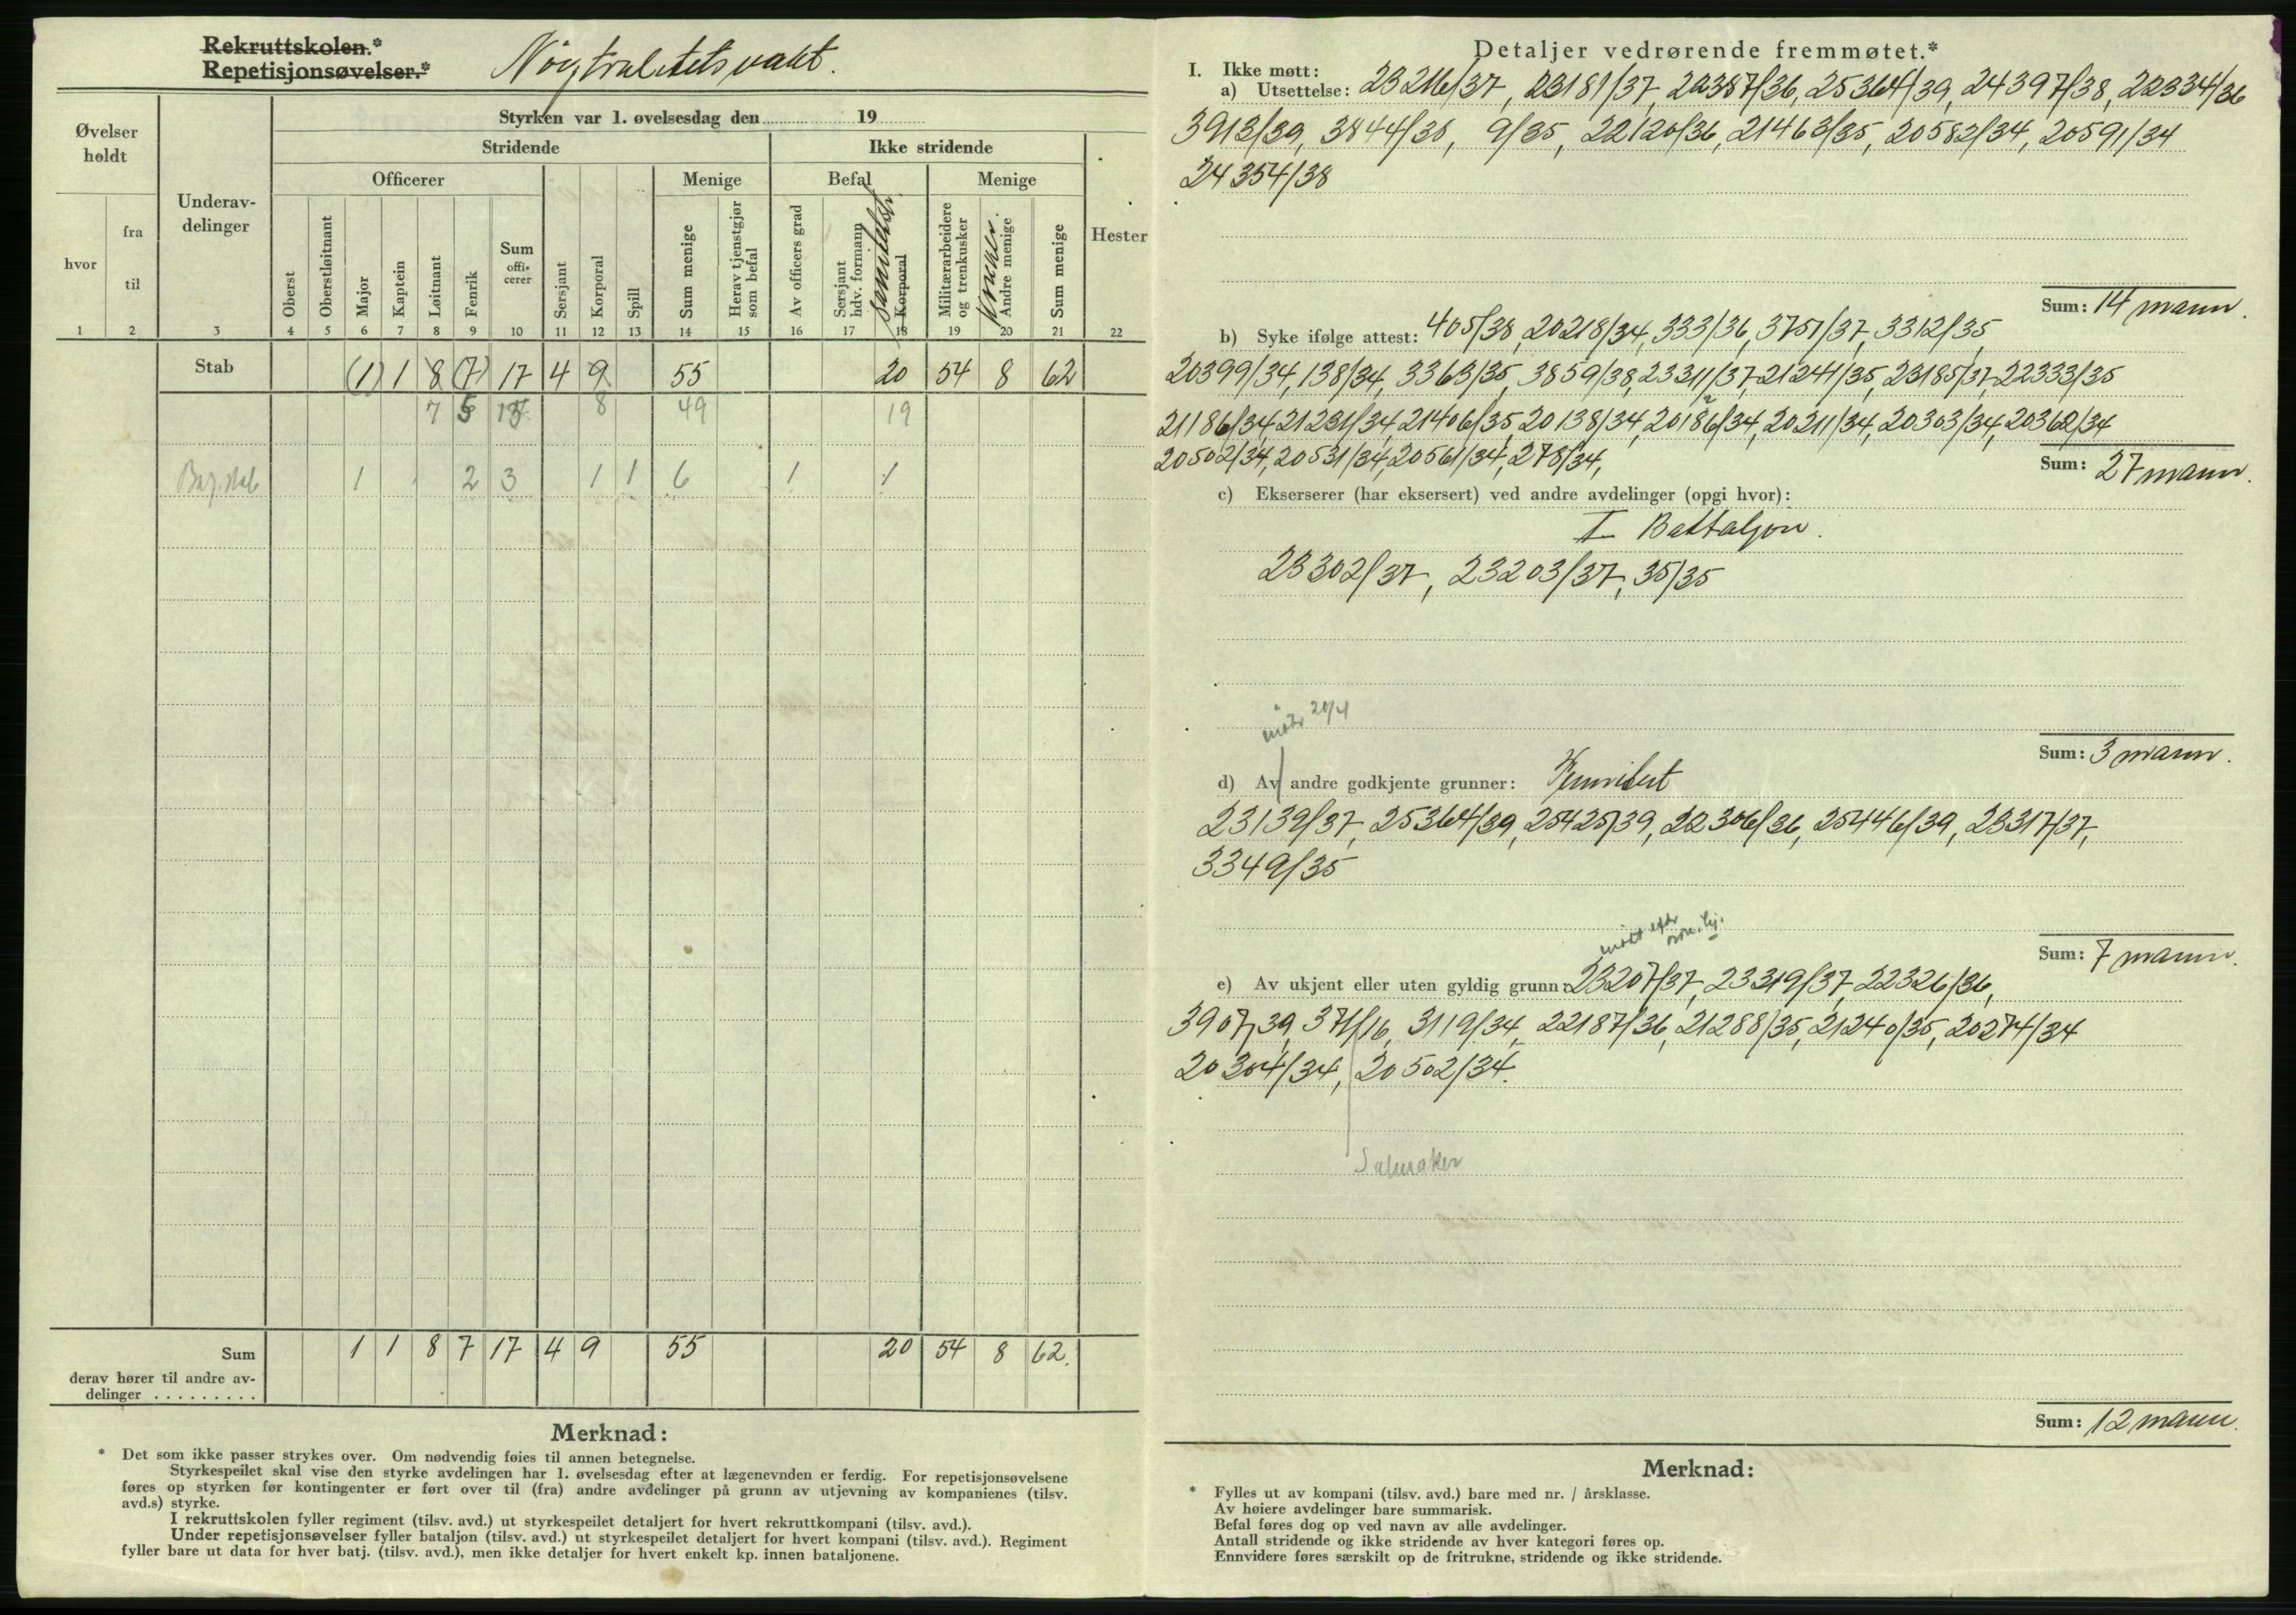 Rekruttskolen.*
Repetisjonsøvelser.*
Nøytralitetsvakt.
Styrken var 1. øvelsesdag den 19
Øvelser holdt
Underav-
delinger
Stridende
Ikke stridende
Officerer
Menige
Befal
Menige
Hester
hvor
fra
til
Oberst
Oberstløitnant
Major
Kaptein
Løitnant
Fenrik
Sum
offi-
cerer
Sersjant
Korporal
Spill
Sum menige
Herav tjenstgjør
som befal
Av officers grad
Sersjant
hdv. formann
Korporal
Militærarbeidere
og trenkusker
Andre menige
Sum menige
1 2 3 4 5 6 7 8 9 10 11 12 13 14 15 16 17 18 19 20 21 22
Stab (1) 1 8 (7) 17 4 9 55 20 54 8 62
7 5 8 49 19
1 2 3 1 1 6 1 1
Sum 1 1 8 7 17 4 9 55 20 54 8 62.
derav hører til andre av-
delinger . . . . . . . . .
Merknad:
* Det som ikke passer strykes over. Om nødvendig føies til annen betegnelse.
Styrkespeilet skal vise den styrke avdelingen har 1. øvelsesdag efter at lægenevnden er ferdig. For repetisjonsøvelsene
føres op styrken før kontingenter er ført over til (fra) andre avdelinger på grunn av utjevning av kompanienes (tilsv.
avd.s) styrke.
I rekruttskolen fyller regiment (tilsv. avd.) ut styrkespeilet detaljert for hvert rekruttkompani (tilsv. avd.).
Under repetisjonsøvelser fyller bataljon (tilsv. avd.) ut styrkespeilet detaljert for hvert kompani (tilsv. avd.). Regiment
fyller bare ut data for hver batj. (tilsv. avd.), men ikke detaljer for hvert enkelt kp. innen bataljonene.
Detaljer vedrørende fremmøtet.*
I. Ikke møtt:
a) Utsettelse: 23216/37, 23181/37, 22387/36, 25364/39, 24397/38, 22334/36
3913/39, 3844/38, 9/35, 22120/36, 21463/35, 20582/34, 20591/34
24354/38
Sum: 14 mann.
b) Syke ifølge attest: 405/38, 20218/34, 333/36, 3751/37, 3312/35,
20399/34, 138/34, 3363/35, 3859/38, 23311/37, 21241/35, 23185/37, 22333/35
21186/34, 21231/34, 21406/35, 20138/34, 20186/34, 20211/34, 20303/34, 20362/34
20502/34, 20531/34, 20561/34, 278/34,
Sum: 27 mann.
c) Ekserserer (har eksersert) ved andre avdelinger (opgi hvor):
I Battaljon.
23302/37, 23203/37, 35/35
Sum: 3 mann.
20/4
d) Av andre godkjente grunner:
23139/37, 25364/39, 25425/39, 22306/36, 25446/39, 23317/37,
3349/35
Sum: 7 mann.
møtt
e) Av ukjent eller uten gyldig grunn: 23207/37, 23319/37, 22326/36,
3907/39, 371/16, 3119/34, 22187/36, 21288/35, 21240/35, 20274/34
20304/34, 20502/34.
Salmaker
Sum: 12 mann.
Merknad:
* Fylles ut av kompani (tilsv. avd.) bare med nr. / årsklasse.
Av høiere avdelinger bare summarisk.
Befal føres dog op ved navn av alle avdelinger.
Antall stridende og ikke stridende av hver kategori føres op.
Ennvidere føres særskilt op de fritrukne, stridende og ikke stridende.